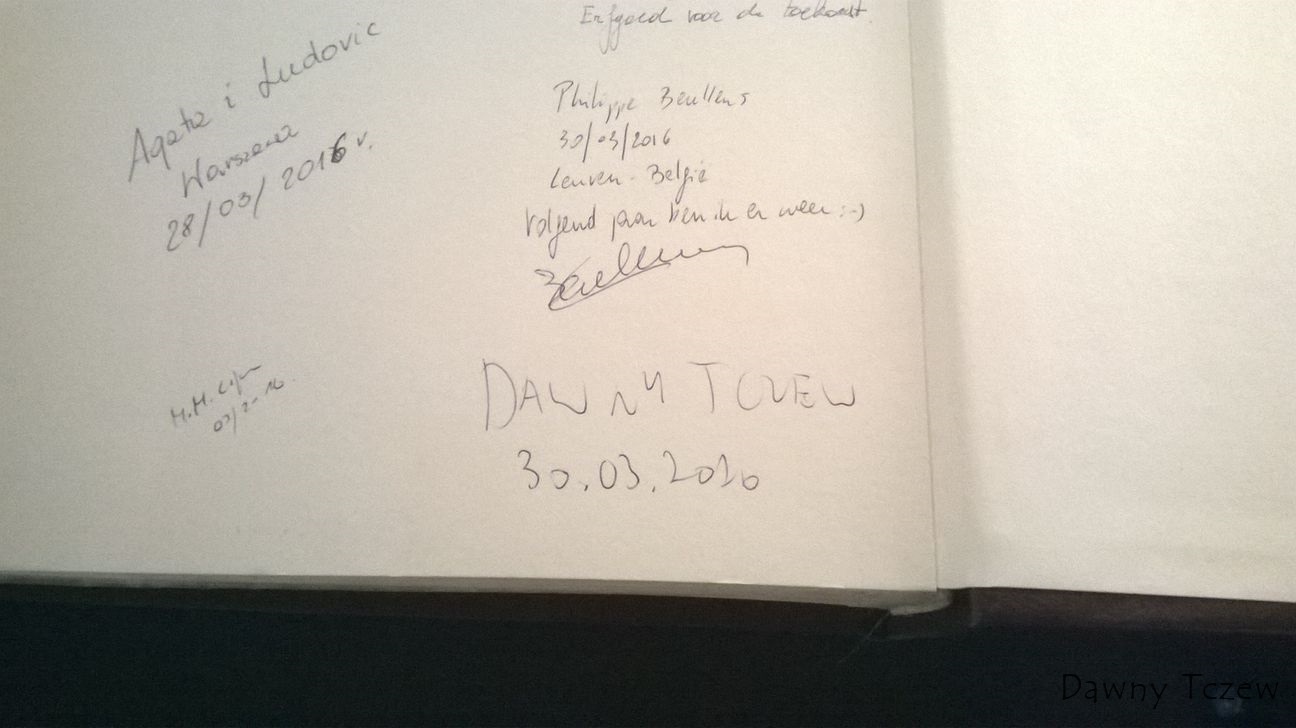 Agata i Ludovic
Warszawa
28/03/2016 r.
M.M.
Erfgoed voor de toekomst.
Philippe Beullens
30/03/2016
Leuven - België
Volgend jaar ben ik er weer :-)
Beullens
DAWNY TCZEW
30.03.2016
Dawny Tczew